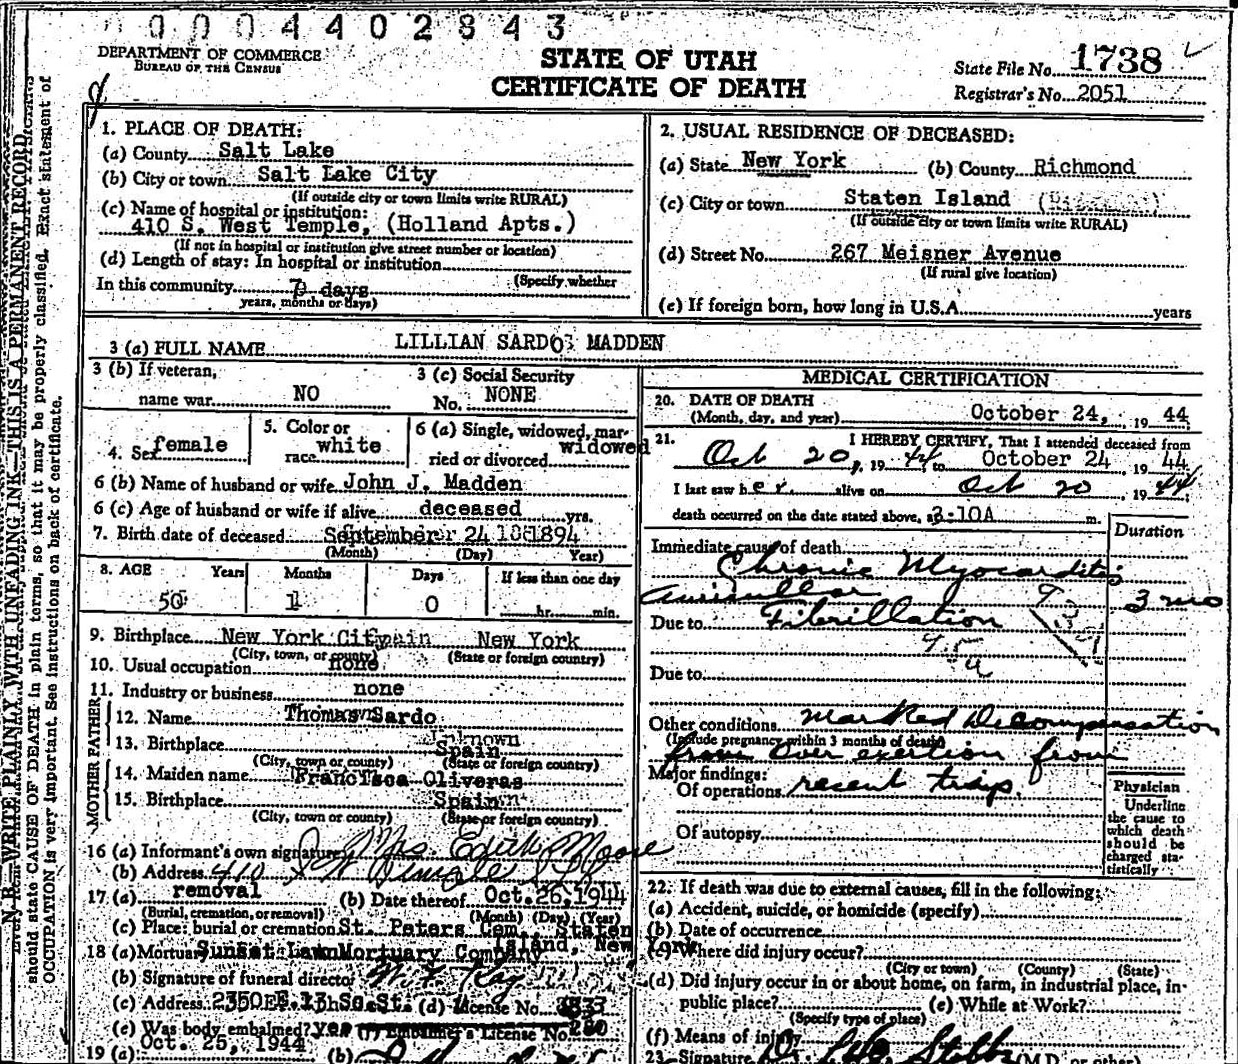 0004402843
DEPARTMENT OF COMMERCE
BUREAU OF THE CENSUS
STATE OF UTAH
CERTIFICATE OF DEATH
State File No. 1738
Registrar's No. 2051
N. B.—WRITE PLAINLY WITH UNFADING INK—THIS IS A PERMANENT RECORD
should state CAUSE OF DEATH in plain terms, so that it may be properly classified. Exact statement of
OCCUPATION is very important. See instructions on back of certificate.
1. PLACE OF DEATH:
(a) County Salt Lake
(b) City or town Salt Lake City
(If outside city or town limits write RURAL)
(c) Name of hospital or institution:
410 S. West Temple, (Holland Apts.)
(If not in hospital or institution give street number or location)
(d) Length of stay: In hospital or institution
(Specify whether
In this community 7 days
years, months or days)
2. USUAL RESIDENCE OF DECEASED:
(a) State New York (b) County Richmond
(c) City or town Staten Island
(If outside city or town limits write RURAL)
(d) Street No. 267 Meisner Avenue
(If rural give location)
(e) If foreign born, how long in U.S.A. years
3 (a) FULL NAME LILLIAN SARDO MADDEN
3 (b) If veteran,
name war NO
3 (c) Social Security
No. NONE
4. Sex female
5. Color or
race white
6 (a) Single, widowed, mar-
ried or divorced widowed
6 (b) Name of husband or wife John J. Madden
6 (c) Age of husband or wife if alive deceased yrs.
7. Birth date of deceased September 24 1894
(Month) (Day) Year)
8. AGE Years Months Days If less than one day
50 1 0 hr. min.
9. Birthplace New York City New York
(City, town, or county) (State or foreign country)
10. Usual occupation none
11. Industry or business none
FATHER
12. Name Thomas Sardo
13. Birthplace Spain
(City, town or county) (State or foreign country)
MOTHER
14. Maiden name Francisca Oliveras
15. Birthplace Spain
(City, town or county) (State or foreign country)
16 (a) Informant's own signature Mrs. Edith Moore
(b) Address 410 S W Temple SLC
17 (a) removal (b) Date thereof Oct. 26, 1944
(Burial, cremation, or removal) (Month) (Day) (Year)
(c) Place: burial or cremation St. Peters Cem., Staten
Island, New York
18 (a) Mortuary Sunset Lawn Mortuary Company
(b) Signature of funeral director
(c) Address 2350 E. 13th So. St. (d) License No.
(e) Was body embalmed? yes (f) Embalmer's License No. 280
19 (a) Oct. 25, 1944 (b)
MEDICAL CERTIFICATION
20. DATE OF DEATH
(Month, day, and year) October 24, 19 44
21. I HEREBY CERTIFY, That I attended deceased from
Oct 20, 19 44 to October 24, 19 44
I last saw her alive on Oct 20, 19 44;
death occurred on the date stated above, at 3:10A m.
Duration
Immediate cause of death
Chronic Myocarditis
Auricular 3 mo
Due to Fibrillation
Due to
Other conditions Marked Decompensation
(Include pregnancy within 3 months of death)
from over exertion from
Major findings:
Of operations recent trip.
Of autopsy
Physician
Underline
the cause to
which death
should be
charged sta-
tistically
22. If death was due to external causes, fill in the following:
(a) Accident, suicide, or homicide (specify)
(b) Date of occurrence
(c) Where did injury occur?
(City or town) (County) (State)
(d) Did injury occur in or about home, on farm, in industrial place, in
public place? (e) While at Work?
(Specify type of place)
(f) Means of injury
23. Signature (M.D. or other)